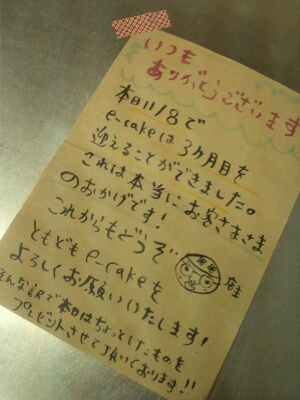 いつも
ありがとうございます
本日11/8で
e-cakeは3ヶ月目を
迎えることができました。
これは本当にお客さまさま
のおかげです!
これからもどうぞ
店主
ともども e-cakeを
よろしくお願いいたします!
そんな訳で本日はちょっとしたものを
プレゼントさせて頂いております!!